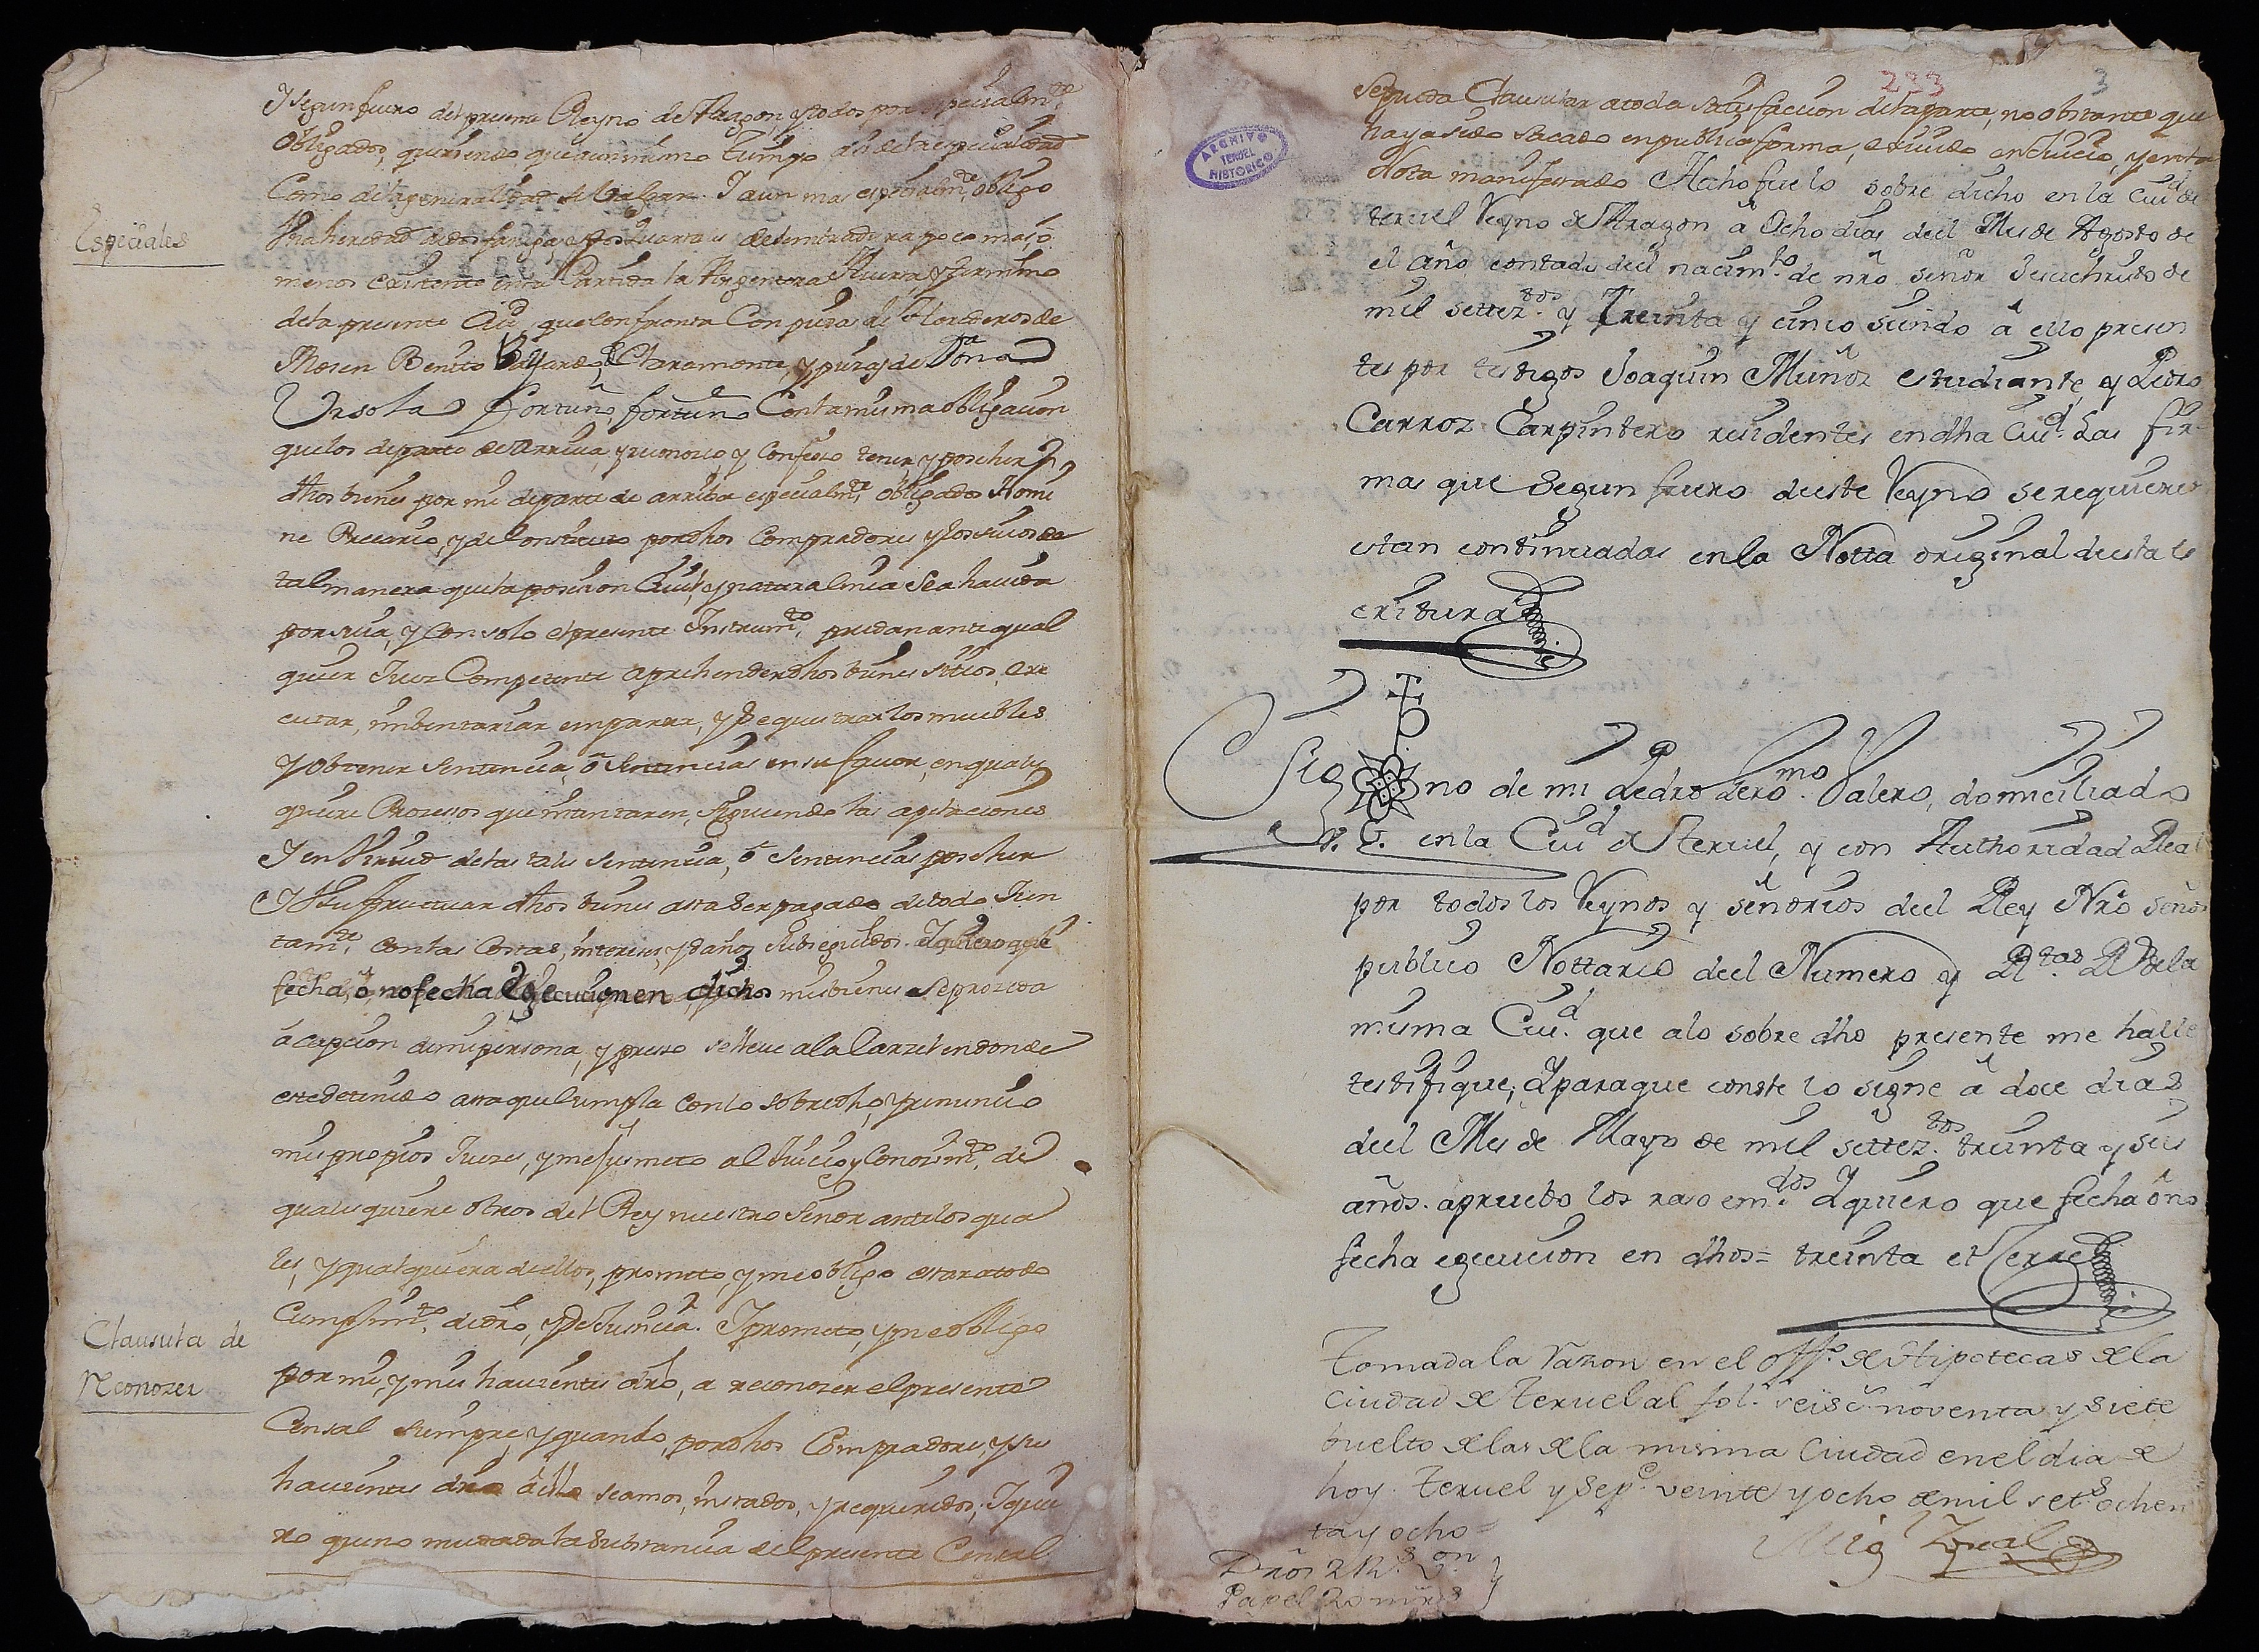 Y segun fuero del presente Reyno de Aragon y todos por especialmte
obligados, queriendo que aun mismo tiempo de la especialidad
Como de la generalidad se balgan. Y aun mas especialmte obligo
Una heredad de dos fanegas, dos quartales de sembradura poco mas, o
Especiales
menos existente en la Partida la Argentera Huerta, y termino
de la presente Ciud que confronta Con pieza de Herederos de
Mosen Benito Claramonte, y piezas de Dona
Ursola Fortuño, fortuño Con la misma obligacion
que los de parte de Arriva, y reconozco, y Confieso tener, y posehir
dhos bienes por mi de parte de arriba especialmte obligados Nomi
ne Precario, y de Constituto por dhos Compradores y los suios de
tal manera que la posesion Civil, y natural mia Sea havida
por suia, y Con solo el presente Instrumto, puedan ante qual
quier Juez Competente aprehender dhos bienes sitios, exe
cutar, imbentariar emparar, y Sequestrar los muebles
Y obtener sentencia, ô sentencias en su favor, en quales
quiere Procesos que intentaren, siguiendo las apelaciones
Y en Virtud de las tales sentencia, ô sentencias posehir
Y Usufructuar dhos bienes asta Ser pagado de todo Jun
tamte con las Costas, intereses, y daños subseguidos. Y quiero que
fecha, ô no fecha Egecucion en dichos mis bienes se prozeda
â capcion de mi persona, y preso se lleve a la Carzel en donde
este detenido asta que cumpla con lo sobredho, y renuncio
mis propios Juezes, y me Jusmeto al Juicio y Conosimto, de
qualesquiere otros del Rey nuestro Señor ante los qua
les, y qualquiera de ellos, prometo, y me obligo estar a todo
Cumplimto, de dro, y De Justicia. Y prometo, y me obligo
Clausula de
Reconozer
por mi, y mis havientes dro, a reconozer el presente
Censal siempre, y quando, por dhos Compradores, y sus
havientes dro de ellos seamos, instados, y requeridos, Y quie
ro que no mudada la substancia del presente Censal
233
3
se pueda Clausular a toda satisfacion de la parte, no obstante que
haya sido sacado en publica forma, exivido en Juicio, y en ta
Nota manifestado Hecho fue lo sobre dicho en la Ciud de
teruel Reyno de Aragon â Ocho dias deel Mes de Agosto de
el Año contado deel nacimto de nro señor Jesuchristo de
mil setteztos y Treinta y cinco siendo â ello presen
tes por testigos Joaquin Muñoz estudiante, y Pedro
Carroz Carpintero residentes en dha Ciud. Las fir
mas que Segun fuero de este Reyno se requieren
estan continuadas en la Notta original de esta es
critura
ARCHIVO
TERUEL
HISTORICO
Sig no de mi Pedro Germo. Valero, domiciliado
en la Ciud de Teruel, y con Authoridad Real
por todos los Reynos y señorios deel Rey Nro señor
publico Nottario deel Numero y de la
misma Ciud. que a lo sobre dho presente me halle
testifique; Y para que conste lo signe â doce dias
deel Mes de Mayo de mil setteztos treinta y seis
años. apruebo los raso emdos. Y quiero que fecha ô no
fecha egecucion en dhos = treinta et Cerre
Tomada la razon en el Offo de Hipotecas de la
ciudad de Teruel al fol. seisc. noventa y siete
buelto de las de la misma Ciudad en el dia de
hoy. Teruel y Sepe. veinte y ocho de mil sets ochen
ta y ocho =
Dros 2 Rs. Von
Papel 20 mrs